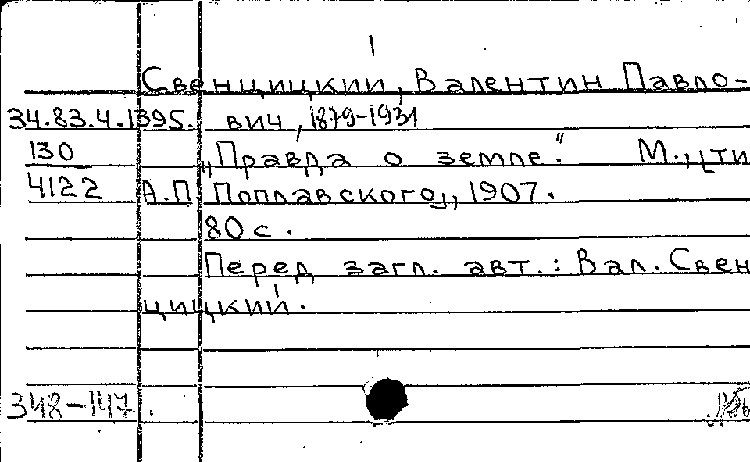 Свенцицкий, Валентин Павло-
34.83.4.1395. вич, 1879-1931
130 „Правда о земле." М., [ти
4122 А.П. Поплавского], 1907.
80 с.
Перед загл. авт.: Вал. Свен
цицкий.
348-147.